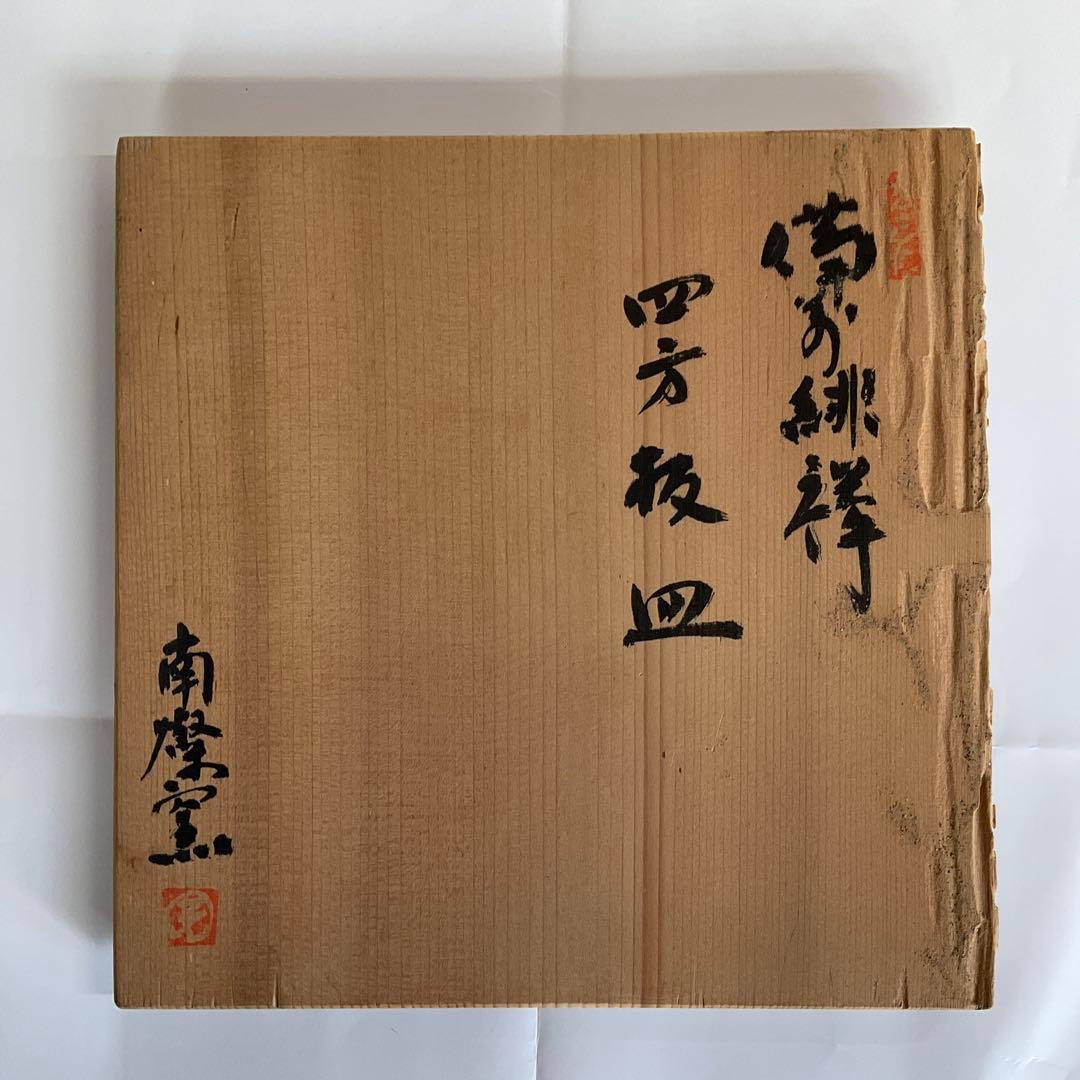 備前緋襷
四方板皿
南燦窯